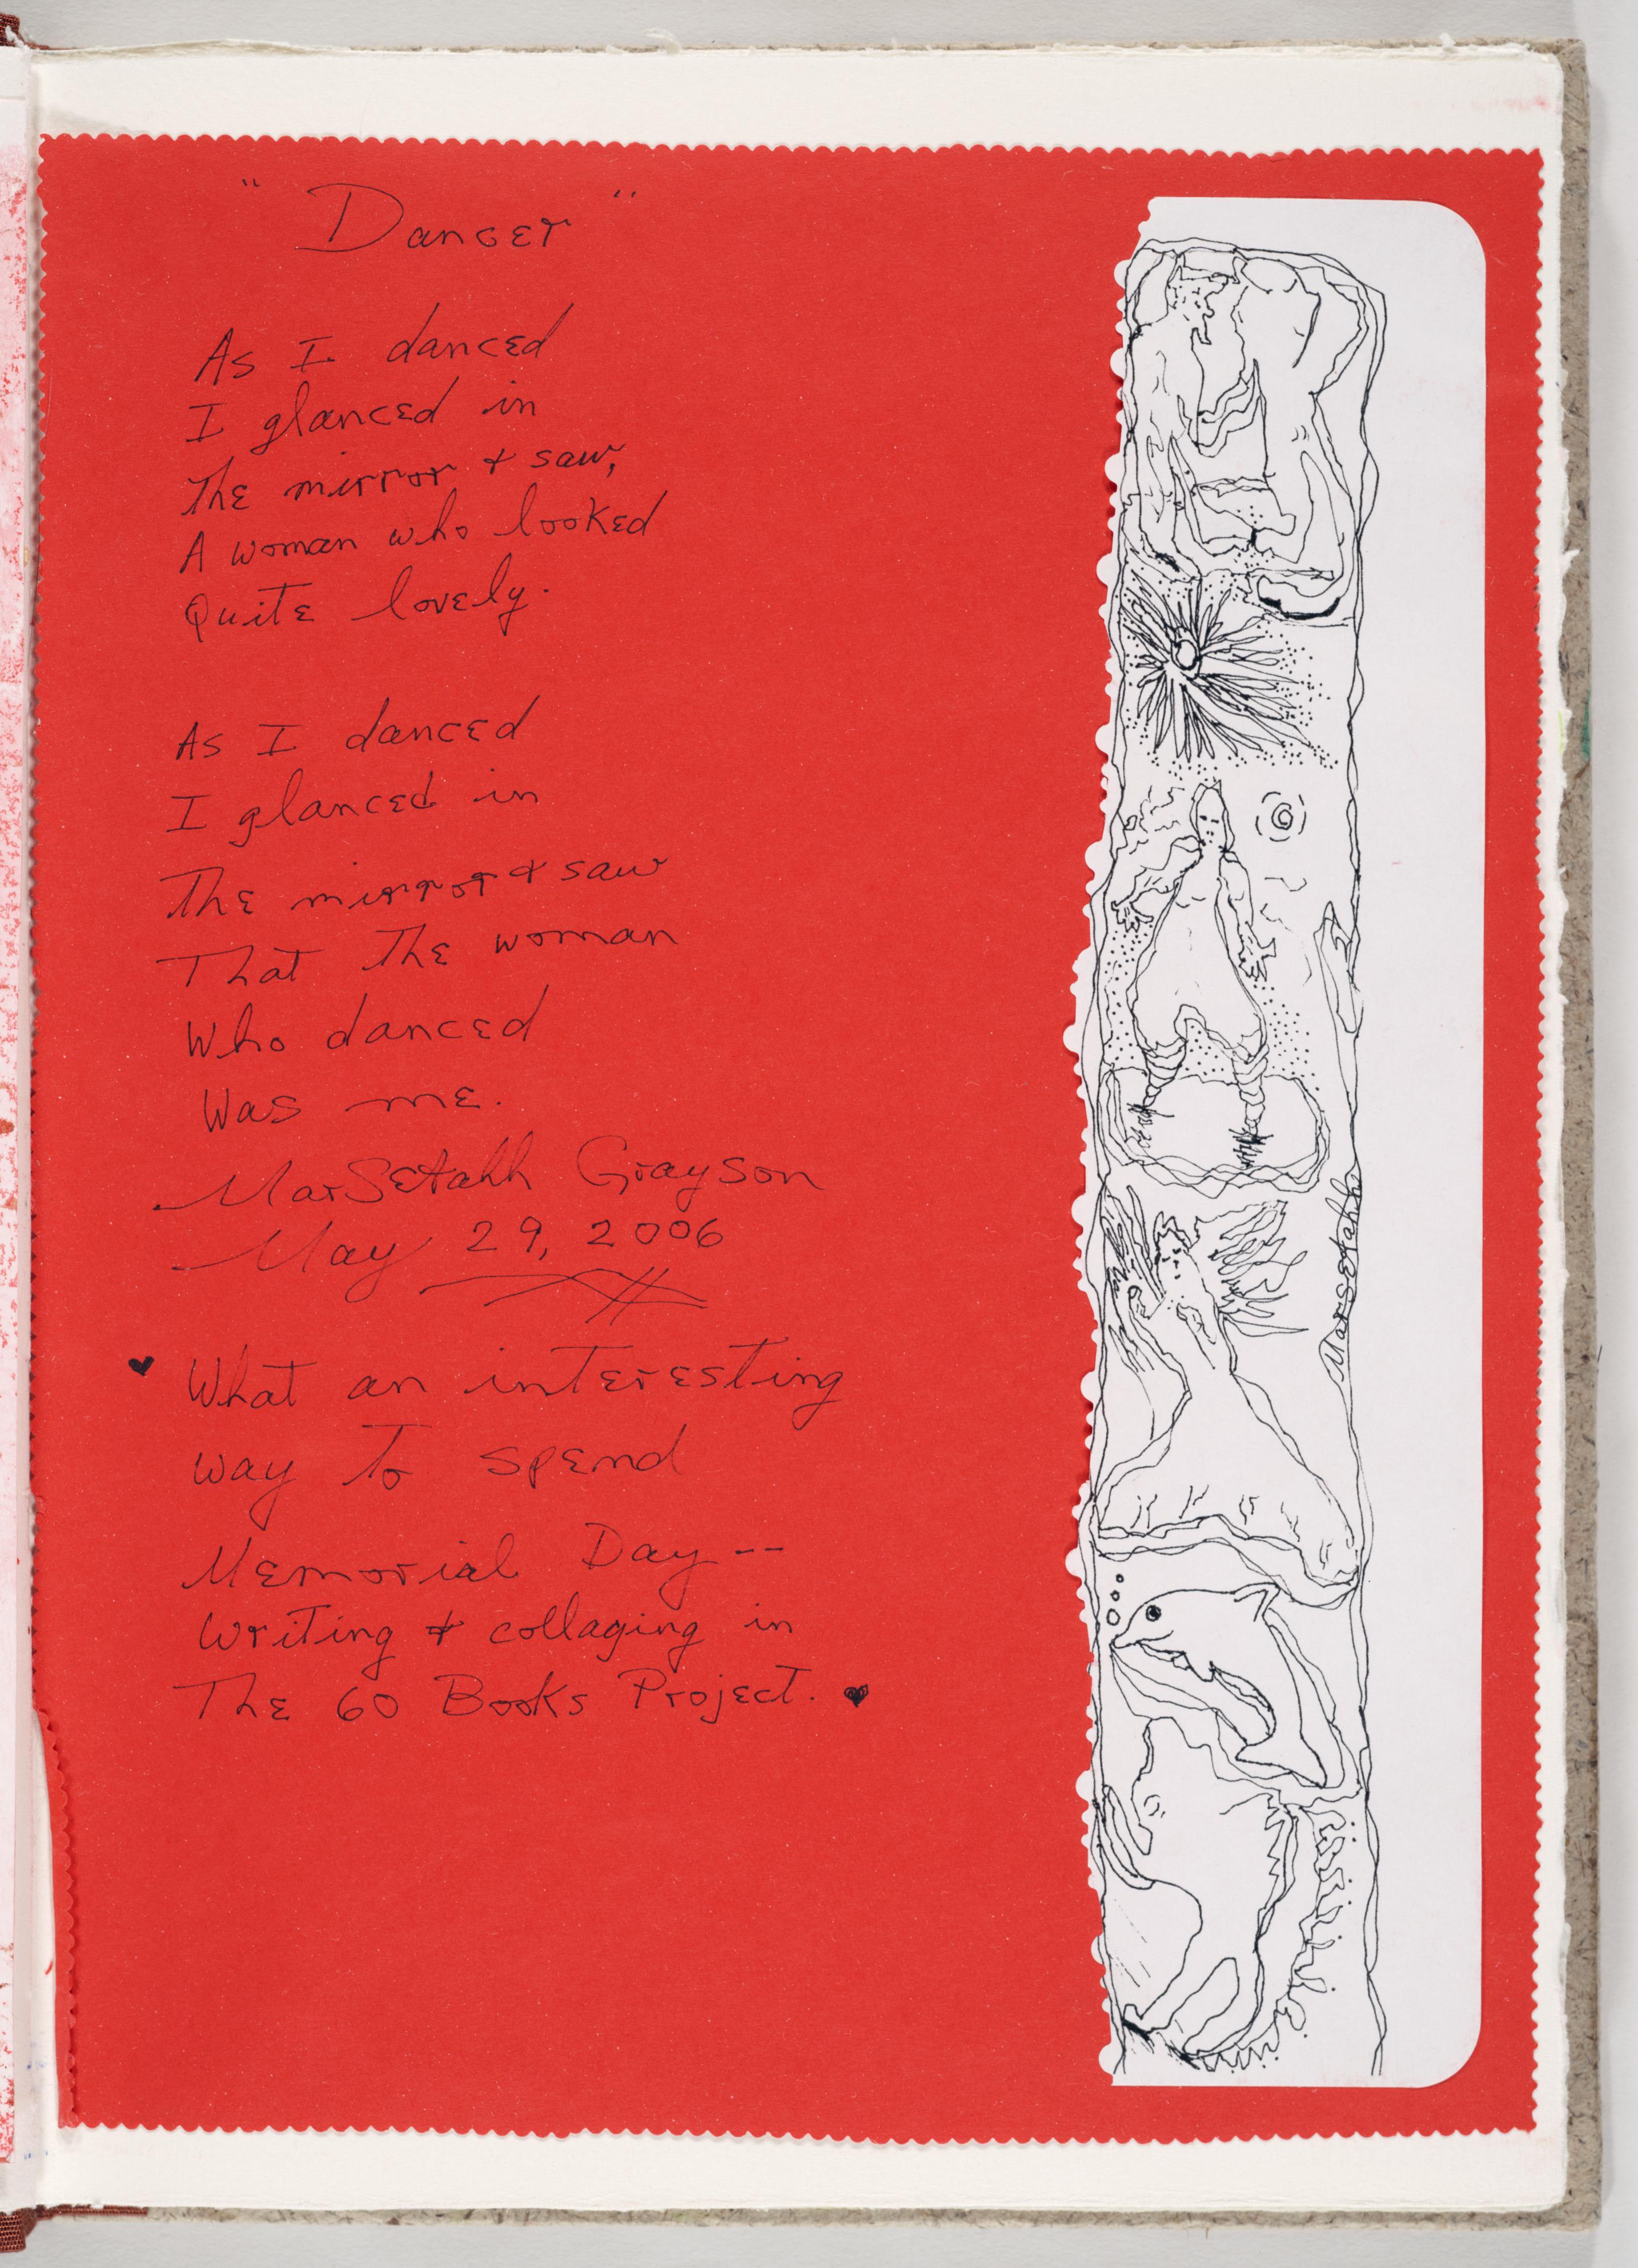 "Dancer"
As I danced
I glanced in
The mirror + saw,
A woman who looked
Quite lovely.
As I danced
I glanced in
The mirror + saw
That The woman
Who danced
Was me.
MarSetahh Grayson
May 29, 2006
♥ What an interesting
way To spend
Memorial Day --
Writing + collaging in
The 60 Books Project. ♥
Marsetahh